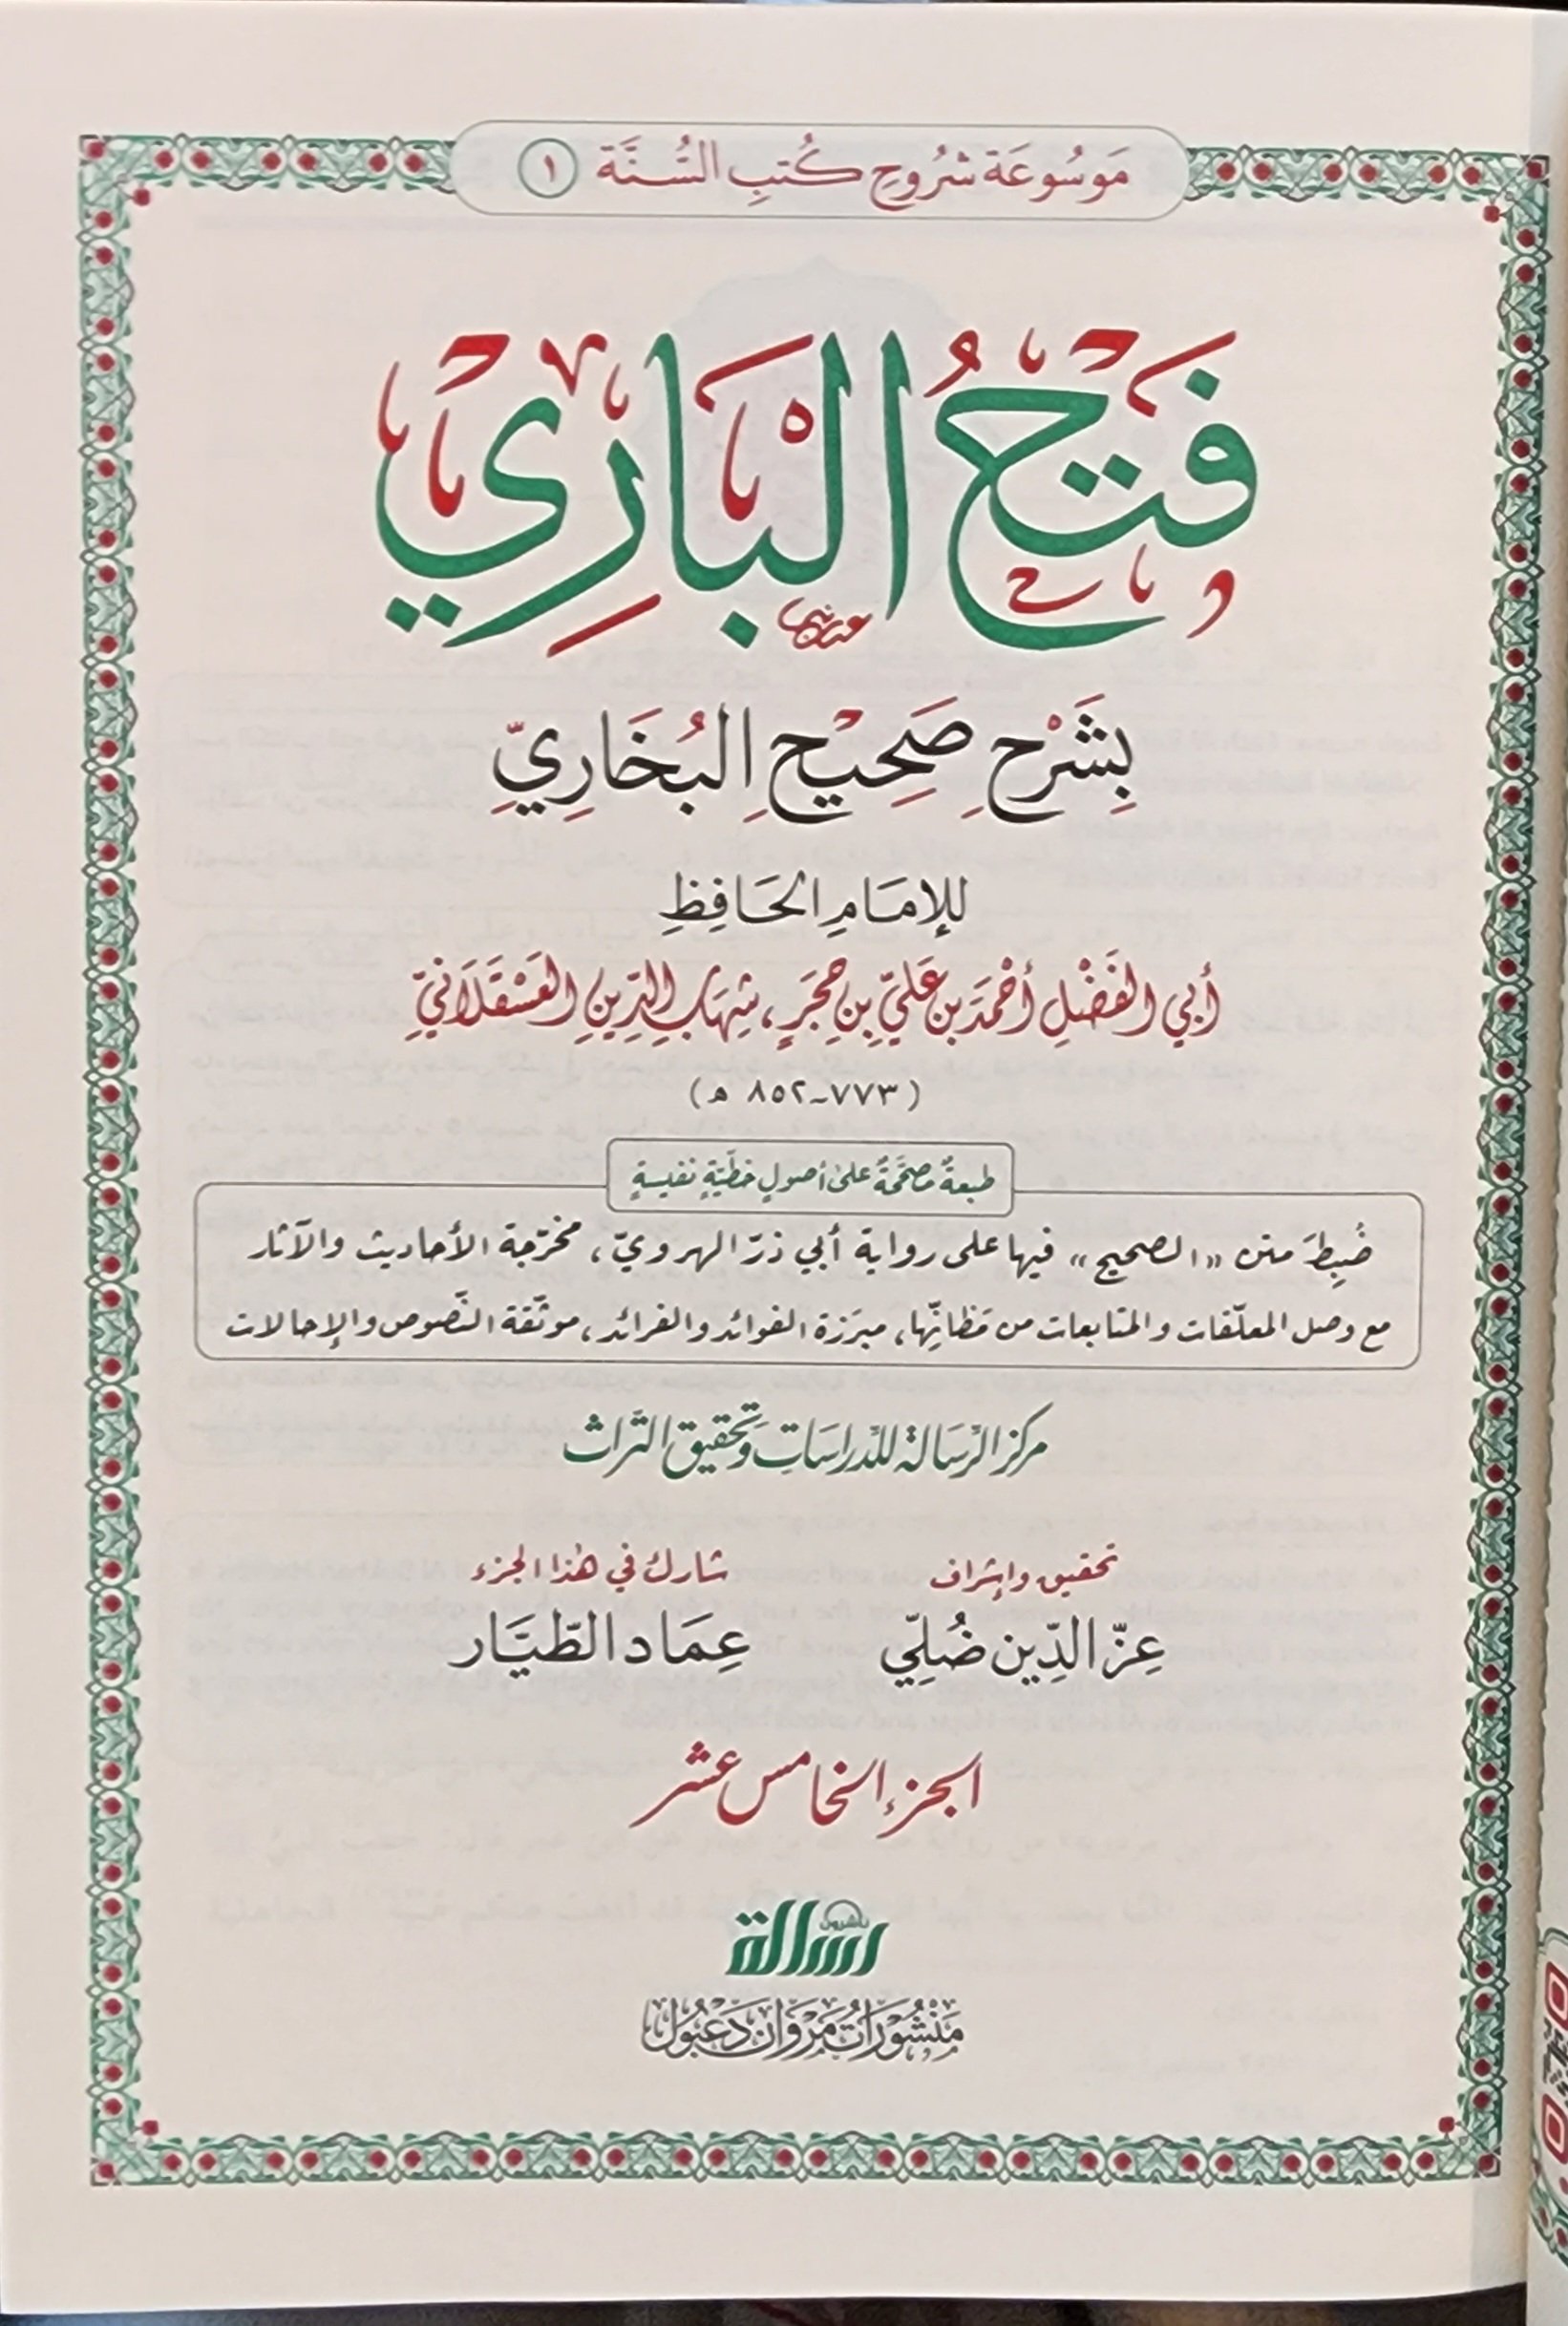 مَوسُوعَة شرُوحِ كُتبِ السُّنَّة ١
فَتْحُ الْبَارِي
بِشَرْحِ صَحِيْحِ البُخَارِيِّ
للإمَامِ الحَافِظِ
أبي الفَضْلِ أحْمَدَ بن عَليِّ بنِ حَجَرٍ، شِهَابِ الدِّينِ العَسْقَلَانيِّ
(٧٧٣-٨٥٢ هـ)
طبعةٌ مصحَّحةٌ على أصولٍ خطّيّةٍ نفيسةٍ
ضُبِطَ متن «الصحيح» فيها على رواية أبي ذرّ الهرويّ، مخرّجة الأحاديث والآثار
مع وصل المعلّقات والمتابعات من مَظانّها، مبرَزة الفوائد والفرائد، موثّقة النّصوص والإحالات
مركز الرسَالة للدّراسَاتِ وَتحقيق التّراث
تحقيق وإشراف
عِزّ الدِّين ضُلِّي
شاركَ في هٰذا الجزء
عِمَاد الطَّيَّار
الجزء الخامس عشر
ناشرون
رسالة
مَنْشُورَات مَرْوَان دَعْبُول